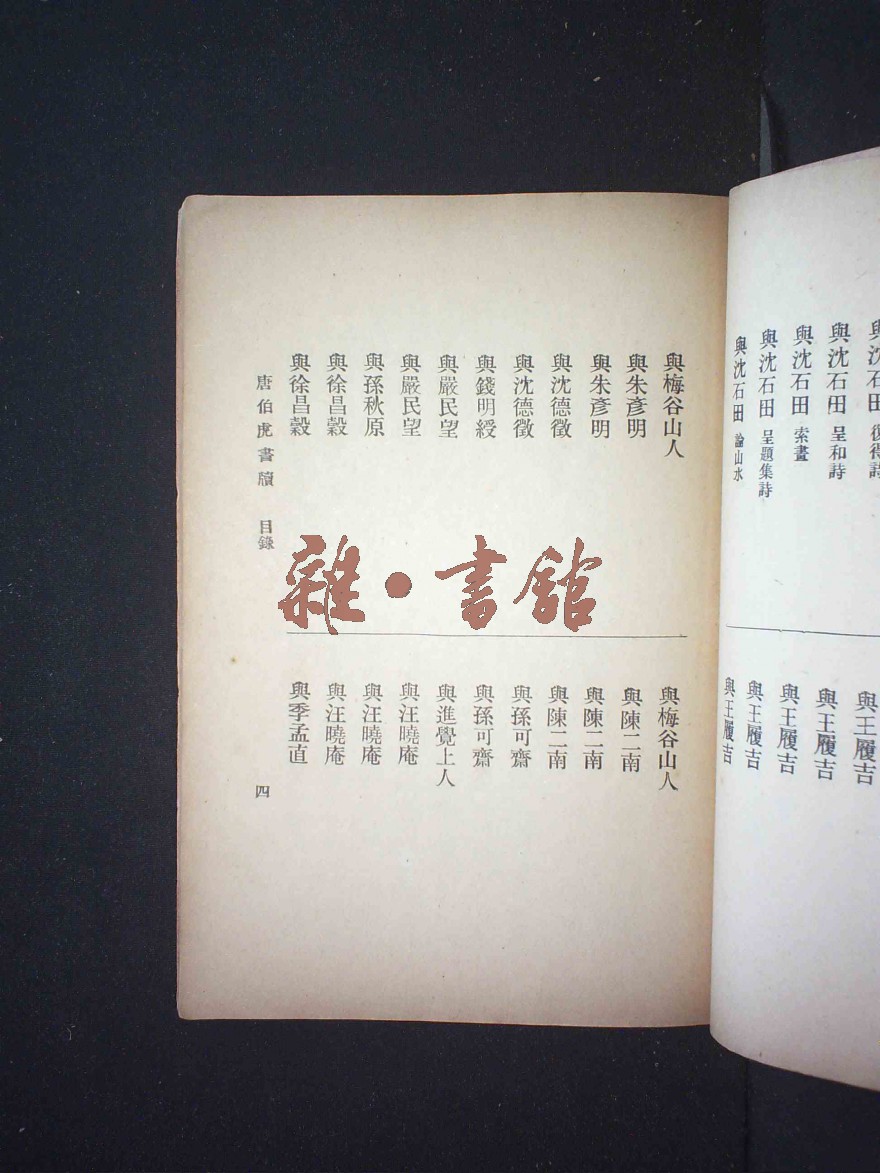 與沈石田 復得詩
與沈石田 呈和詩
與沈石田 索畫
與沈石田 呈題集詩
與沈石田 論山水
與王履吉
與王履吉
與王履吉
與王履吉
與王履吉
與梅谷山人
與朱彥明
與朱彥明
與沈德徵
與沈德徵
與錢明綬
與嚴民望
與嚴民望
與孫秋原
與徐昌穀
與徐昌穀
與梅谷山人
與陳二南
與陳二南
與陳二南
與孫可齋
與孫可齋
與進覺上人
與汪曉庵
與汪曉庵
與汪曉庵
與季孟直
唐伯虎書牘 目錄
四
雜·書館